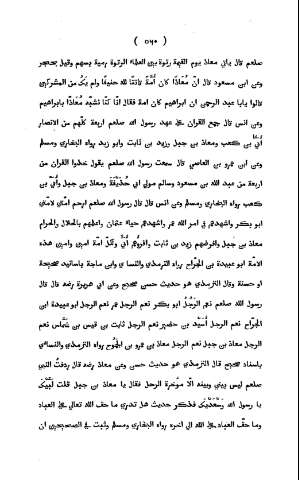 ( ٥٦٠ )
صلعم قال ياتي معاذ يوم القيمة رتوة بين العلماء الرتوة رمية بسهم وقيل بحجر
وعن ابن مسعود قال انّ مُعَاذًا كان أُمَّةً قانتًا لله حنيفًا ولم يَكُ من المشركين
قالوا يابا عبد الرحمن ان ابراهيم كان امة فقال انّا كنّا نشبّه مُعَاذًا بابراهيم
وعن انس قال جمع القران على عهد رسول الله صلعم اربعة كلهم من الانصار
أُبيّ بن كعب ومعاذ بن جبل وزيد بن ثابت وابو زيد رواه البخاري ومسلم
وعن ابن عمرو بن العاصي قال سمعت رسول الله صلعم يقول خذوا القران من
اربعة من عبد الله بن مسعود وسالم مولى ابي حُذَيْفَةَ ومعاذ بن جبل وأُبَيّ بن
كعب رواه البخاري ومسلم وعن انس قال قال رسول الله صلعم ارحم امتي لامتي
ابو بكر واشدهم في امر الله عمر واشدهم حياء عثمان واعلمهم بالحلال والحرام
معاذ بن جبل وافرضهم زيد بن ثابت واقرؤهم أُبيّ ولكل امة امين وامين هذه
الامة ابو عبيدة بن الجرّاح رواه الترمذي والنساءي وابن ماجة باسانيد صحيحة
او حسنة وقال الترمذي هو حديث حسن وعن ابي هريرة رضه قال قال
رسول الله صلعم نعم الرَجُلُ ابو بكر نعم الرجل عمر نعم الرجل ابو عبيدة ابن
الجرّاح نعم الرجل أُسَيْد بن حضير نعم الرجل ثابت بن قيس بن شمّاس نعم
الرجل معاذ بن جبل نعم الرجل معاذ بن عمرو بن الجَمُوح رواه الترمذي والنساءي
باسناد صحيح قال الترمذي هو حديث حسن وعن معاذ رضه قال ردفتُ النبي
صلعم ليس بيني وبينه الا مؤخرة الرحل فقال يا معاذ بن جبل قلت لَبَّيْكَ
يا رسول الله وَسَعْدَيْكَ فذكر حديث هل تدري ما حق الله تعالى على العباد
وما حق العباد على الله الى اخره رواه البخاري ومسلم وثبت في الصحيحين ان